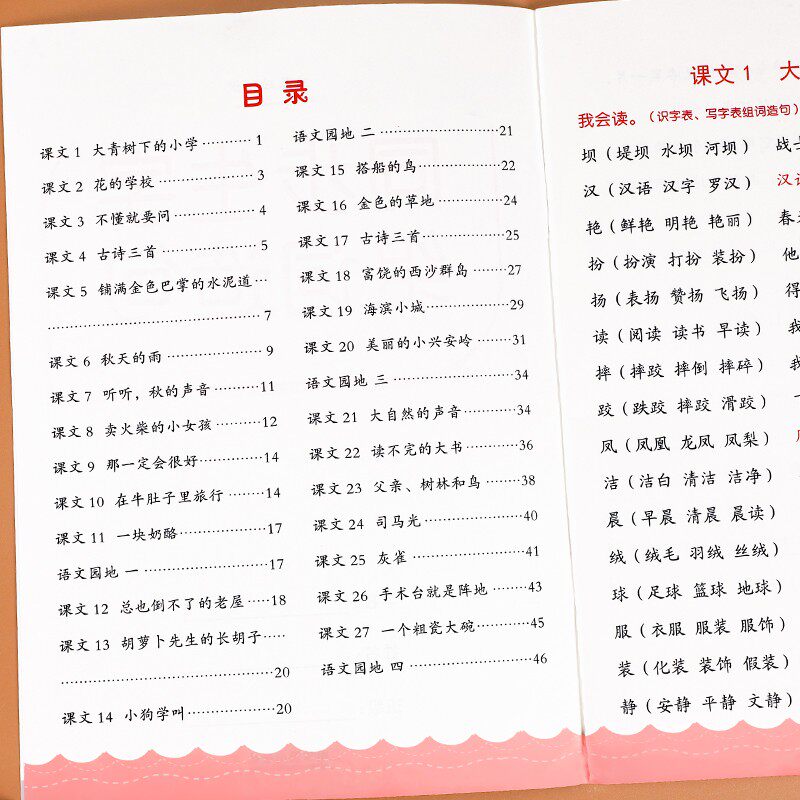 目 录
课文1 大青树下的小学 ··········· 1
课文2 花的学校 ····················· 3
课文3 不懂就要问 ·················· 4
课文4 古诗三首 ····················· 5
课文5 铺满金色巴掌的水泥道 ···
················································ 7
课文6 秋天的雨 ····················· 9
课文7 听听，秋的声音 ··········11
课文8 卖火柴的小女孩 ·········· 12
课文9 那一定会很好···············14
课文10 在牛肚子里旅行 ········14
课文11 一块奶酪···················17
语文园地 一 ·························17
课文12 总也倒不了的老屋 ·····18
课文13 胡萝卜先生的长胡子·····
················································20
课文14 小狗学叫···················20
语文园地 二 ·························21
课文15 搭船的鸟···················22
课文16 金色的草地 ···············24
课文17 古诗三首···················25
课文18 富饶的西沙群岛 ········27
课文19 海滨小城···················29
课文20 美丽的小兴安岭 ········31
语文园地 三 ·························34
课文21 大自然的声音············34
课文22 读不完的大书 ···········36
课文23 父亲、树林和鸟 ········38
课文24 司马光······················40
课文25 灰雀 ·························41
课文26 手术台就是阵地 ········43
课文27 一个粗瓷大碗············45
语文园地 四 ·························46
课文1 大
我会读。（识字表、写字表组词造句）
坝（堤坝 水坝 河坝） 战士
汉（汉语 汉字 罗汉） 汉语
艳（鲜艳 明艳 艳丽） 春
扮（扮演 打扮 装扮） 他
扬（表扬 赞扬 飞扬） 得
读（阅读 读书 早读） 我
摔（摔跤 摔倒 摔碎） 我
跤（跌跤 摔跤 滑跤）
凤（凤凰 龙凤 凤梨）
洁（洁白 清洁 洁净）
晨（早晨 清晨 晨读）
绒（绒毛 羽绒 丝绒）
球（足球 篮球 地球）
服（衣服 服装 服饰）
装（化装 装饰 假装）
静（安静 平静 文静）